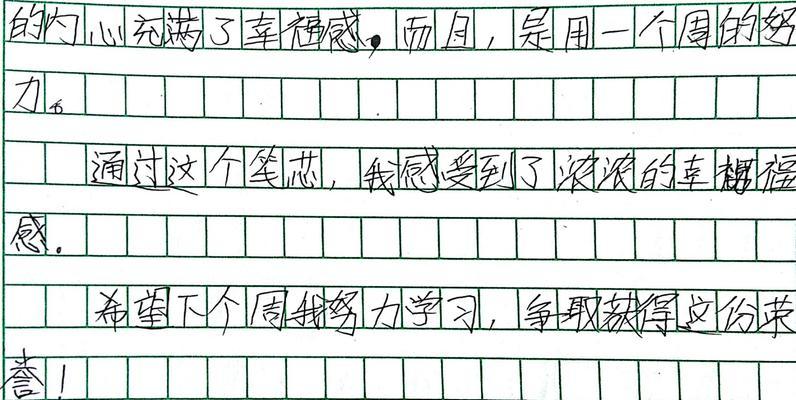 的内心充满了幸福感，而且，是用一个周的努
力。
通过这个笔芯，我感受到了浓浓的幸福
感.
希望下个周我努力学习，争取获得这份荣
誉！